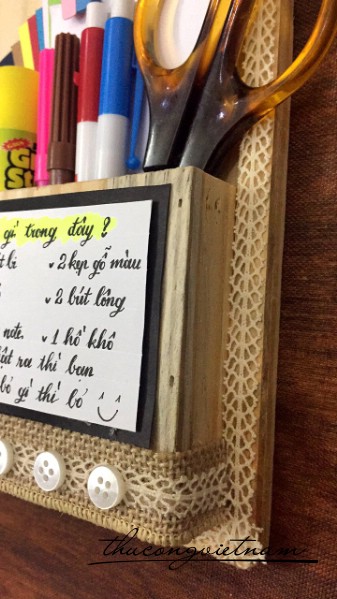 gì trong đây ?
bi ✓ 2 kẹp gỗ màu
✓ 2 bút lông
note. ✓ 1 hồ khô
ra thì bạn
bỏ gì thì bỏ
thucongvietnam